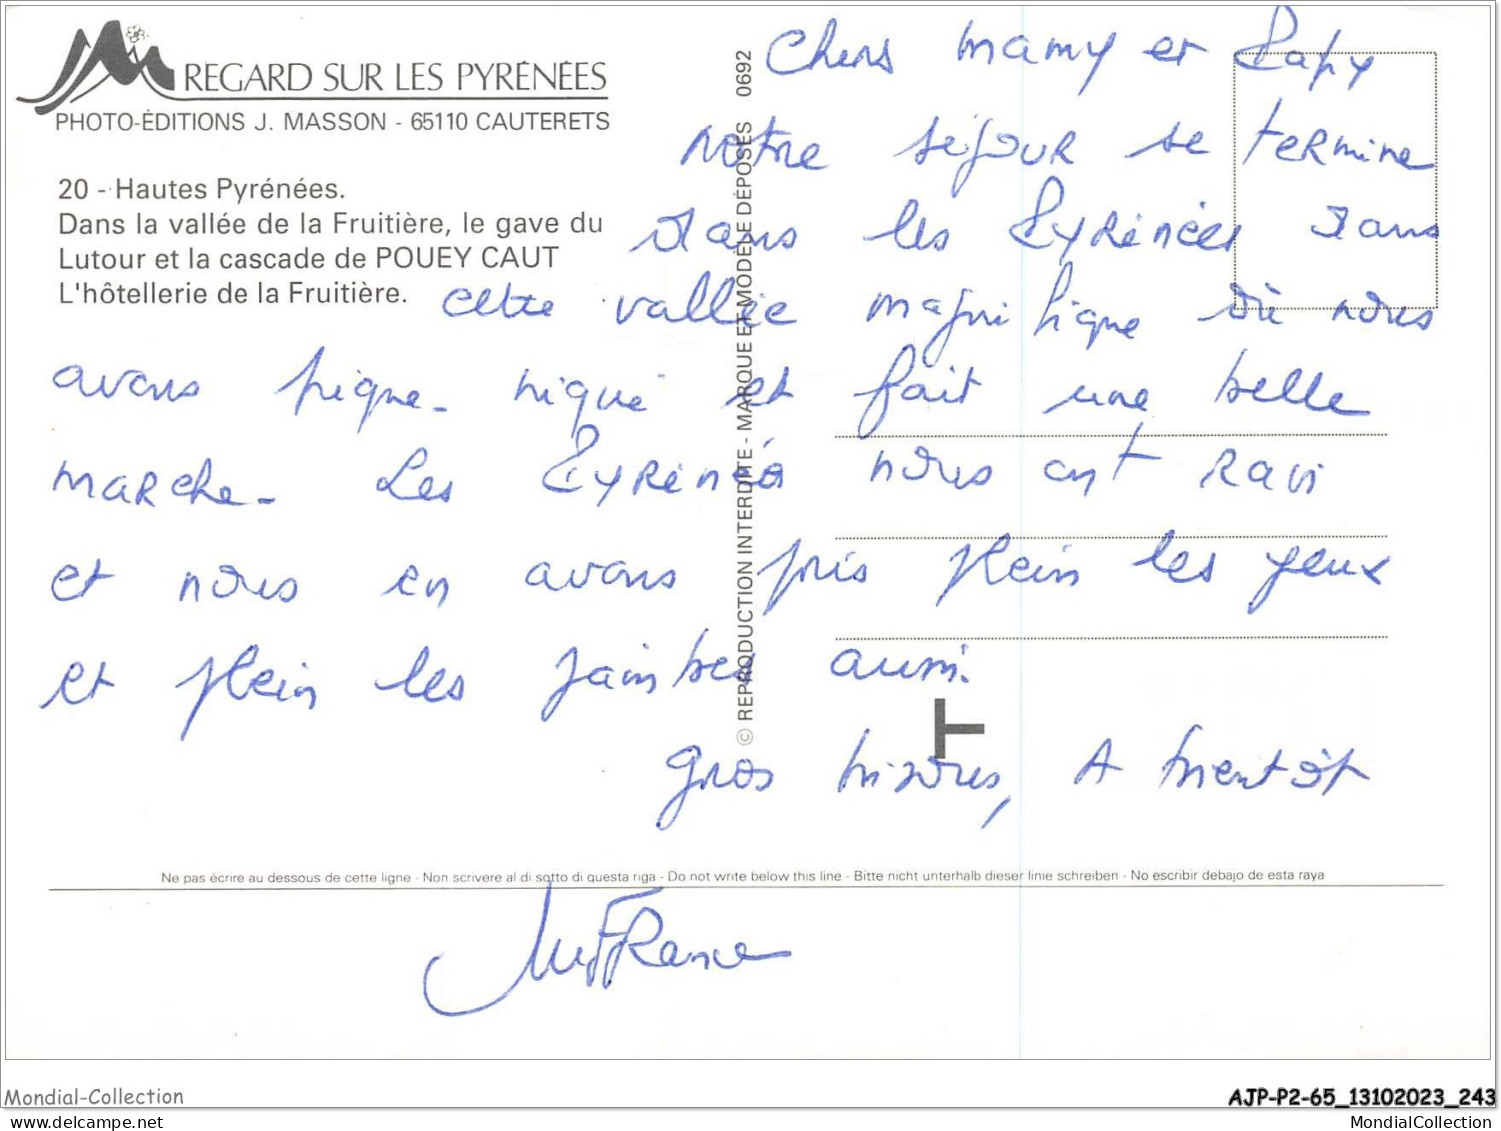 REGARD SUR LES PYRÉNÉES
PHOTO-ÉDITIONS J. MASSON - 65110 CAUTERETS
20 - Hautes Pyrénées.
Dans la vallée de la Fruitière, le gave du
Lutour et la cascade de POUEY CAUT
L'hôtellerie de la Fruitière.
© REPRODUCTION INTERDITE - MARQUE ET MODÈLE DÉPOSÉS 0692
Chers Mamy et Papy
notre séjour se termine
dans les Pyrénées dans
cette vallée magnifique où nous
avons pique-niqué et fait une belle
marche. Les Pyrénées nous ont ravi
et nous en avons pris plein les yeux
et plein les jambes aussi.
gros bisous, A bientôt
T
Ne pas écrire au dessous de cette ligne - Non scrivere al di sotto di questa riga - Do not write below this line - Bitte nicht unterhalb dieser linie schreiben - No escribir debajo de esta raya
Mondial-Collection
AJP-P2-65_13102023_243
www.delcampe.net
MondialCollection